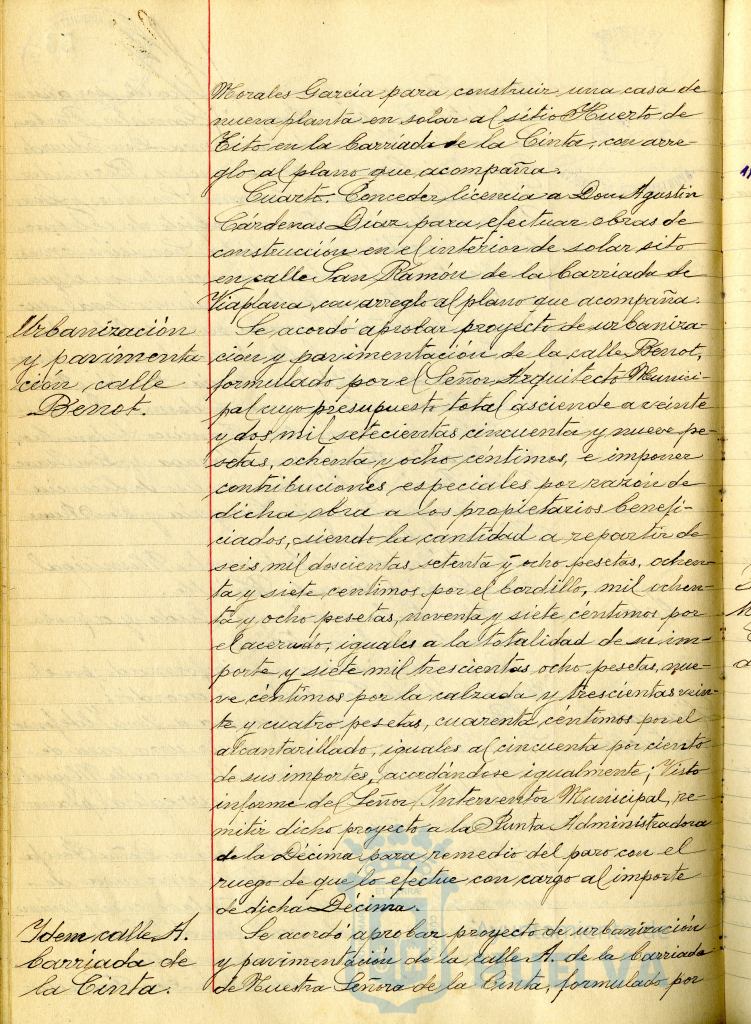 Morales Garcia para construir una casa de
nueva planta en solar al sitio Huerto de
Tito en la barriada de la Cinta, con arre-
glo al plano que acompaña.
Cuarto. Conceder licencia a Don Agustin
Cárdenas Díaz para efectuar obras de
construcción en el interior de solar sito
en calle San Ramón de la barriada de
Viaplana, con arreglo al plano que acompaña.
Urbanización
y pavimenta
ción calle
Benot.
Se acordó aprobar proyecto de urbaniza-
ción y pavimentación de la calle Benot,
formulado por el Señor Arquitecto Munici-
pal cuyo presupuesto total asciende a veinte
y dos mil setecientas cincuenta y nueve pe-
setas, ochenta y ocho centimos, e imponer
contribuciones especiales por razón de
dicha obra a los propietarios benefi-
ciados, siendo la cantidad a repartir de
seis mil doscientas setenta y ocho pesetas, ochen-
ta y siete centimos por el bordillo, mil ochen-
ta y ocho pesetas, noventa y siete centimos por
el acerado, iguales a la totalidad de su im-
porte y siete mil trescientas ocho pesetas, nue-
ve céntimos por la calzada y trescientas vein-
te y cuatro pesetas, cuarenta céntimos por el
alcantarillado, iguales al cincuenta por ciento
de sus importes, acordándose igualmente; Visto
informe del Señor Interventor Municipal, re-
mitir dicho proyecto a la Junta Administradora
de la Décima para remedio del paro con el
ruego de que lo efectue con cargo al importe
de dicha Décima.
Idem calle A.
barriada de
la Cinta.
Se acordó aprobar proyecto de urbanización
y pavimentación de la calle A. de la barriada
de Nuestra Señora de la Cinta, formulado por
HUELVA